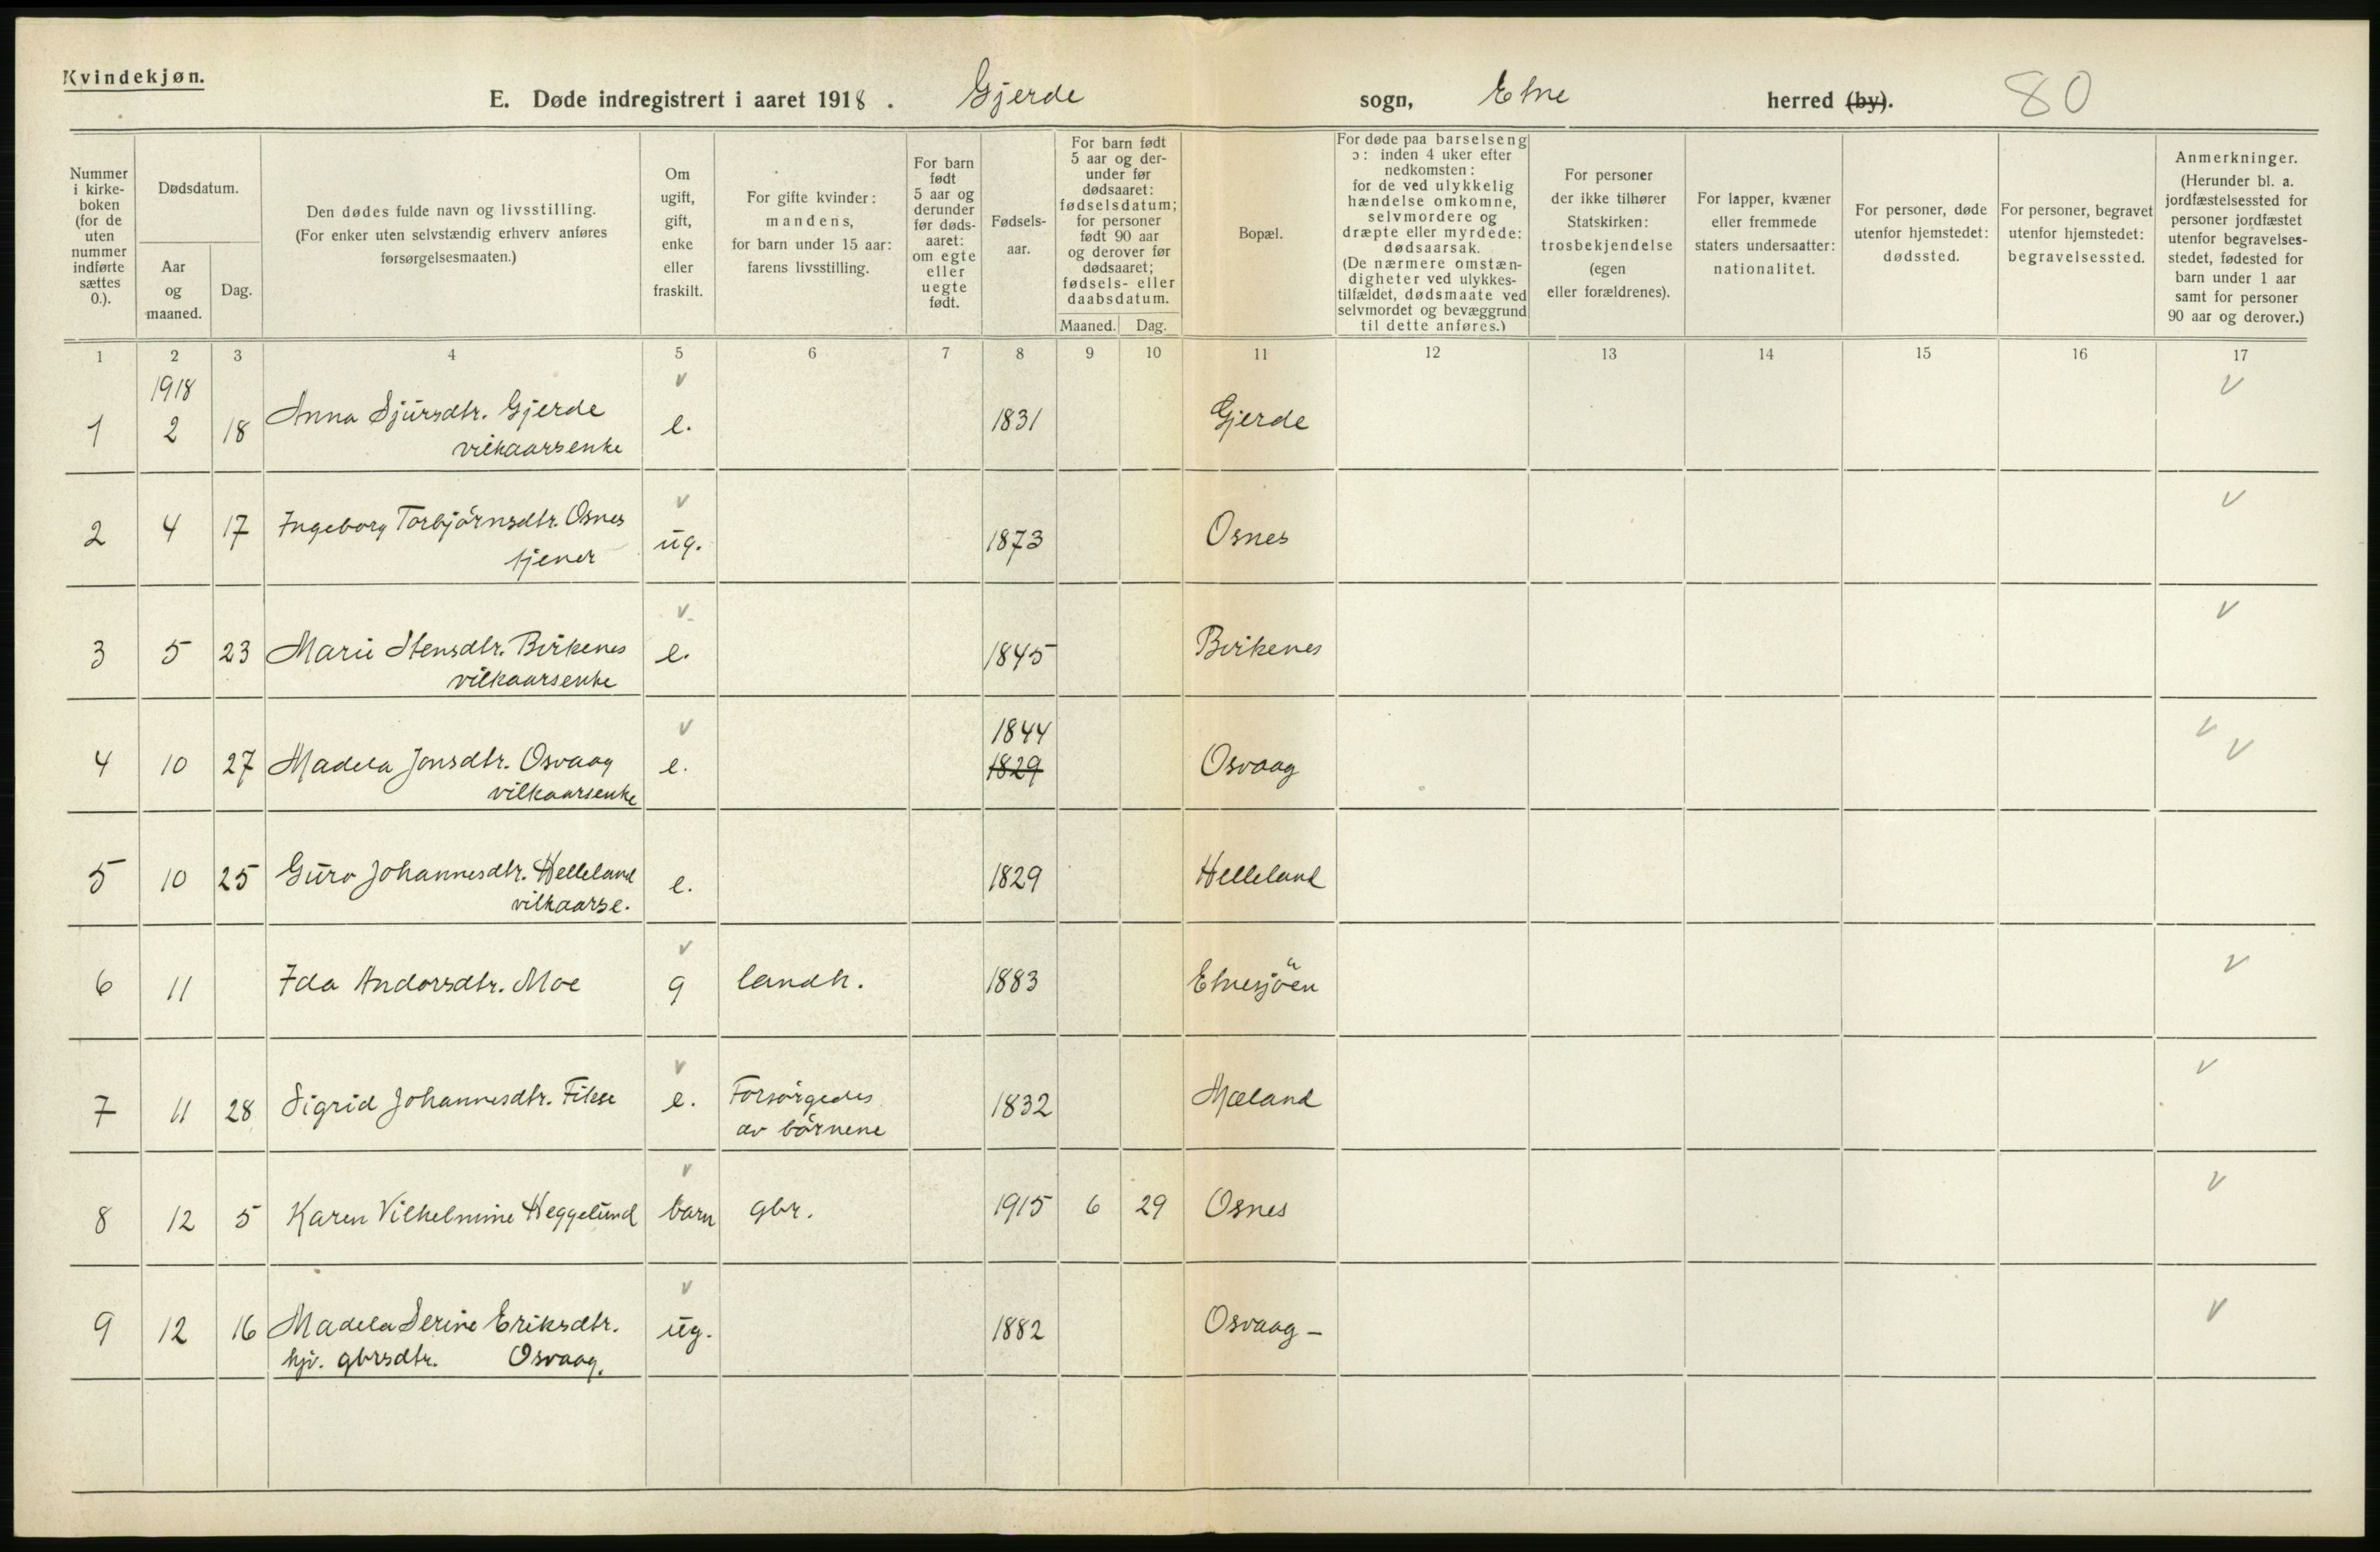 Kvindekjøn.
E. Døde indregistrert i aaret 1918. Gjerde sogn, Etne herred (by). 80
Nummer i kirkeboken (for de uten nummer indførte sættes 0.).
Dødsdatum.
Aar og maaned.
Dag.
Den dødes fulde navn og livsstilling.
(For enker uten selvstændig erhverv anføres
forsørgelsesmaaten.)
Om ugift, gift, enke eller fraskilt.
For gifte kvinder: mandens, for barn under 15 aar: farens livsstilling.
For barn født 5 aar og derunder før dødsaaret: om egte eller uegte født.
Fødselsaar.
For barn født 5 aar og derunder før dødsaaret: fødselsdatum; for personer født 90 aar og derover før dødsaaret; fødsels- eller daabsdatum.
Maaned. Dag.
Bopæl.
For døde paa barselseng ɔ: inden 4 uker efter nedkomsten: for de ved ulykkelig hændelse omkomne, selvmordere og dræpte eller myrdede: dødsaarsak. (De nærmere omstændigheter ved ulykkestilfældet, dødsmaate ved selvmordet og bevæggrund til dette anføres.)
For personer der ikke tilhører Statskirken: trosbekjendelse (egen eller forældrenes).
For lapper, kvæner eller fremmede staters undersaatter: nationalitet.
For personer, døde utenfor hjemstedet: dødssted.
For personer, begravet utenfor hjemstedet: begravelsessted.
Anmerkninger. (Herunder bl. a. jordfæstelsessted for personer jordfæstet utenfor begravelsesstedet, fødested for barn under 1 aar samt for personer 90 aar og derover.)
1 2 3 4 5 6 7 8 9 10 11 12 13 14 15 16 17
1918 v v
1 2 18 Anna Sjursdtr. Gjerde e. 1831 Gjerde
vilkaarsenke
v v
2 4 17 Ingeborg Torbjörnsdtr. Osnes ug. 1873 Osnes
tjener
v v
3 5 23 Marie Stensdtr. Birkenes e. 1845 Birkenes
vilkaarsenke
v 1844 v
4 10 27 Madela Jonsdtr. Osvaag e. 1829 Osvaag v
vilkaarsenke
5 10 25 Guro Johannesdtr. Helleland e. 1829 Helleland
vilkaarse.
v v
6 11 Ida Andorsdtr. Moe g landh. 1883 Etnesjöen
v v
7 11 28 Sigrid Johannesdtr. Fikse e. Forsörgedes 1832 Mæland
av börnene
v v
8 12 5 Karen Vilhelmine Heggelund barn gbr. 1915 6 29 Osnes
v v
9 12 16 Madela Serine Eriksdtr. ug. 1882 Osvaag –
hjv. gbrsdtr. Osvaag.